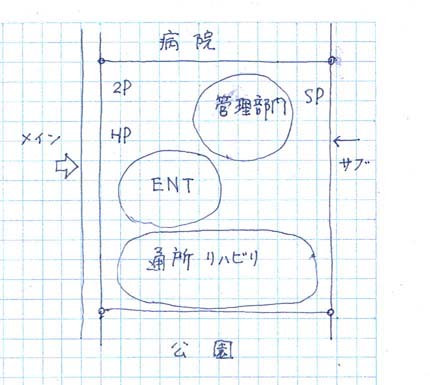 病院
2P
管理部門
SP
メイン
HP
サブ
ENT
通所リハビリ
公園